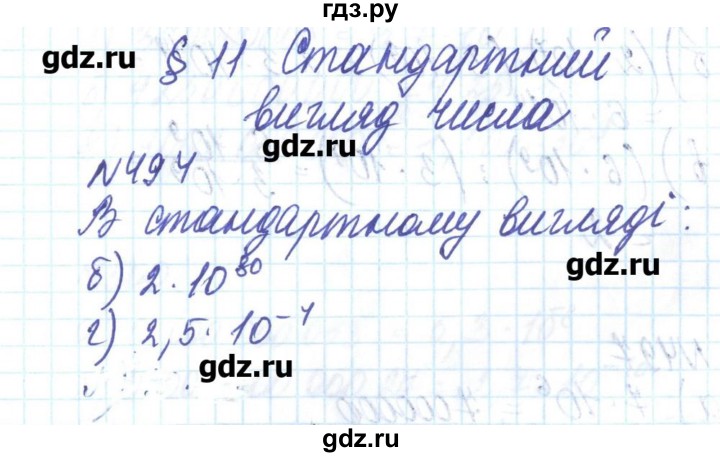 гдз.ру
gdz.ru
§ 11 Стандартний
вигляд числа
gdz.ru
№494
В стандартному вигляді:
gdz.ru
б) 2·10³⁰
г) 2,5·10⁻⁴
gdz.ru
gdz.ru